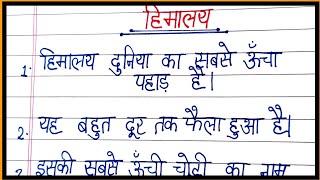 हिमालय
1. हिमालय दुनिया का सबसे ऊँचा
पहाड़ है।
2. यह बहुत दूर तक फैला हुआ है।
इसकी सबसे ऊँची चोटी का नाम